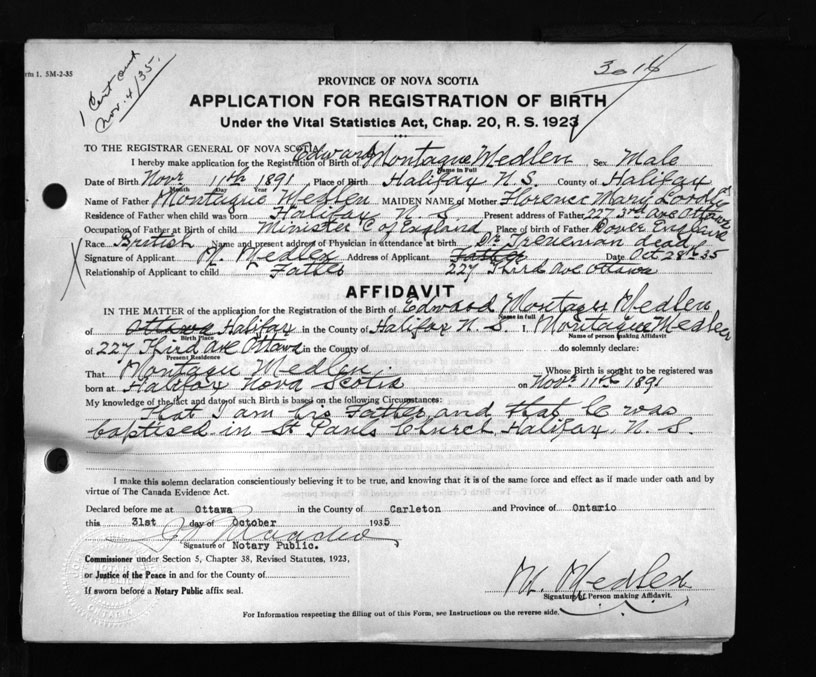 rm 1. 5M-2-35
1 Cert out
Nov. 4/35.
3014
PROVINCE OF NOVA SCOTIA
APPLICATION FOR REGISTRATION OF BIRTH
Under the Vital Statistics Act, Chap. 20, R. S. 1923
TO THE REGISTRAR GENERAL OF NOVA SCOTIA
I hereby make application for the Registration of Birth of Edward Montague Medlen Sex Male
Name in Full
Date of Birth Novr 11th 1891 Place of Birth Halifax N.S. County of Halifax
Month Day Year
Name of Father Montague Medlen MAIDEN NAME of Mother Florence Mary
Residence of Father when child was born Halifax N.S. Present address of Father 227 3rd Ave Ottawa
Occupation of Father at Birth of child Minister C of England Place of birth of Father Dover England
Race British Name and present address of Physician in attendance at birth Dr dead
Signature of Applicant M. Medlen Address of Applicant Father Date Oct 28th 35
Relationship of Applicant to child Father 227 Third Ave Ottawa
AFFIDAVIT
IN THE MATTER of the application for the Registration of the Birth of Edward Montague Medlen
Name in full
of Ottawa Halifax in the County of Halifax N.S. I, Montague Medlen
Birth Place Name of person making Affidavit
of 227 Third Ave Ottawa in the County of do solemnly declare:
Present Residence
That Montagu Medlen. Whose Birth is sought to be registered was
born at Halifax Nova Scotia on Novr 11th 1891
My knowledge of the fact and date of such Birth is based on the following Circumstances:
That I am his Father and that he was
baptised in St Pauls Church, Halifax, N.S.
I make this solemn declaration conscientiously believing it to be true, and knowing that it is of the same force and effect as if made under oath and by
virtue of The Canada Evidence Act.
Declared before me at Ottawa in the County of Carleton and Province of Ontario
this 31st day of October 1935
Signature of Notary Public.
Commissioner under Section 5, Chapter 38, Revised Statutes, 1923,
or Justice of the Peace in and for the County of
If sworn before a Notary Public affix seal.
M. Medlen
Signature of Person making Affidavit.
For Information respecting the filling out of this Form, see Instructions on the reverse side.